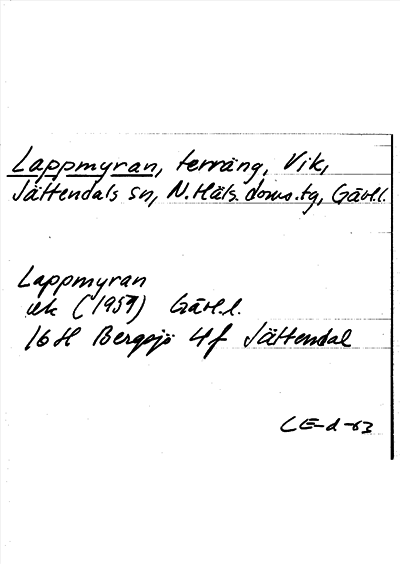 Lappmyran, terräng, Vik,
Jättendals sn, N. Häls. doms.tg, Gävl.l.
Lappmyran
ek (1957) Gävl.l.
16H Bergsjö 4f Jättendal
CE-d-63